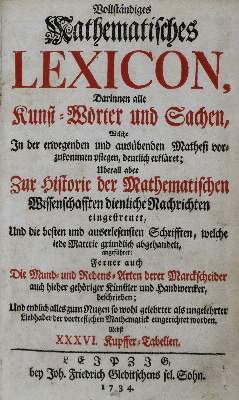 Vollständiges
Mathematisches
LEXICON,
Darinnen alle
Kunst-Wörter und Sachen,
Welche
In der erwegenden und ausübenden Mathesi vor-
zukommen pflegen, deutlich erkläret;
Uberall aber
Zur Historie der Mathematischen
Wissenschafften dienliche Nachrichten
eingestreuet,
Und die besten und auserlesensten Schrifften, welche
jede Materie gründlich abgehandelt,
angeführet:
Ferner auch
Die Mund- und Redens-Arten derer Marckscheider
auch hieher gehöriger Künstler und Handwercker,
beschrieben;
Und endlich alles zum Nutzen so wohl gelehrter als ungelehrter
Liebhaber der vortreflichen Mathematick eingerichtet worden.
Nebst
XXXVI. Kupffer-Tabellen.
LEIPZIG,
bey Joh. Friedrich Gleditschens sel. Sohn.
1734.